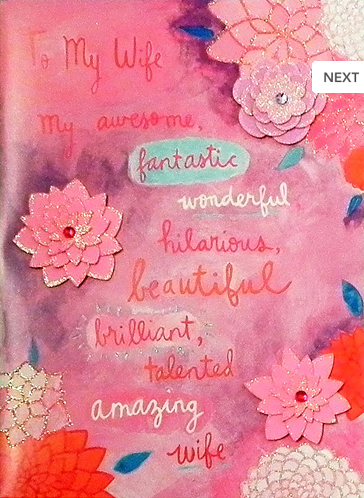 To My Wife
NEXT
my awesome,
fantastic
wonderful
hilarious,
beautiful
brilliant,
talented
amazing
wife